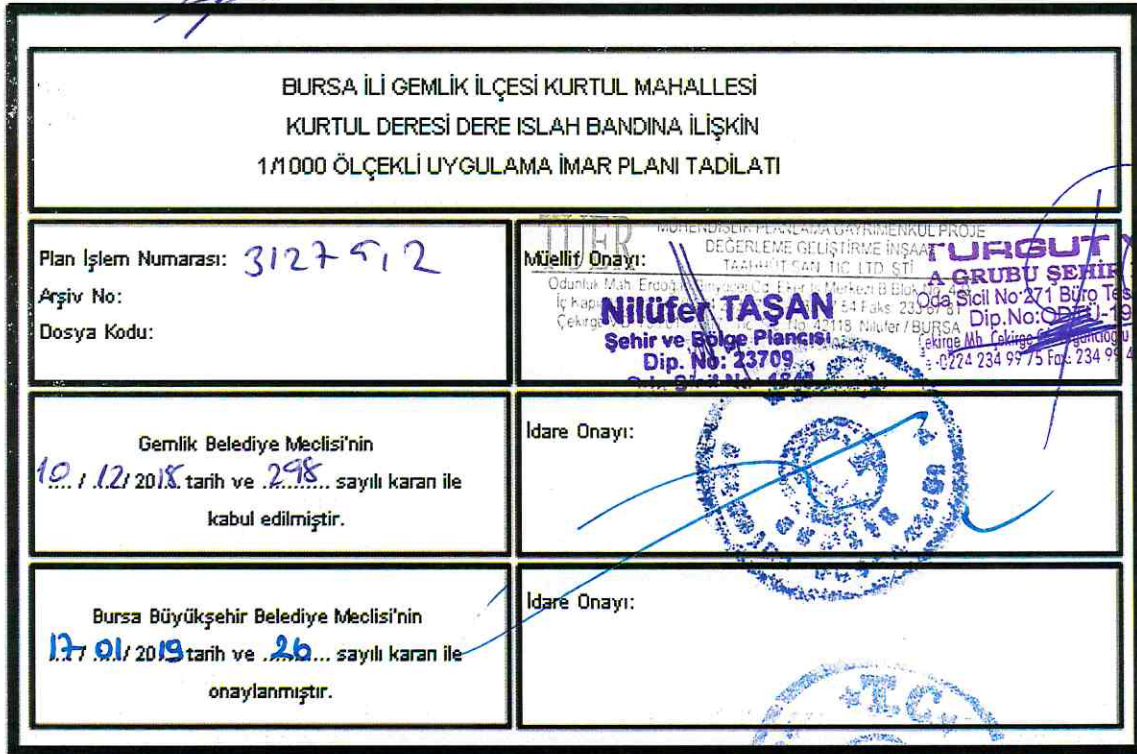 BURSA İLİ GEMLİK İLÇESİ KURTUL MAHALLESİ
KURTUL DERESİ DERE ISLAH BANDINA İLİŞKİN
1/1000 ÖLÇEKLİ UYGULAMA İMAR PLANI TADİLATI
Plan İşlem Numarası: 31275,2
Arşiv No:
Dosya Kodu:
Müellif Onayı:
TUER
MÜHENDİSLİK PLANLAMA GAYRİMENKUL PROJE
DEĞERLEME GELİŞTİRME İNŞAAT
TAAHHÜT SAN. TİC. LTD. ŞTİ.
Nilüfer TAŞAN
Şehir ve Bölge Plancısı
Dip. No: 23709
42118 Nilüfer / BURSA
TURGUT
A GRUBU ŞEHİR
Oda Sicil No:271 Büro Tes
Dip.No:ODTÜ-19
Çekirge Mh. Çekirge
0224 234 99 75 Fax: 234 99 4
Gemlik Belediye Meclisi'nin
10 / 12 / 2018 tarih ve 298 sayılı kararı ile
kabul edilmiştir.
İdare Onayı:
Bursa Büyükşehir Belediye Meclisi'nin
17 / 01 / 2019 tarih ve 26 sayılı kararı ile
onaylanmıştır.
İdare Onayı:
T.C.